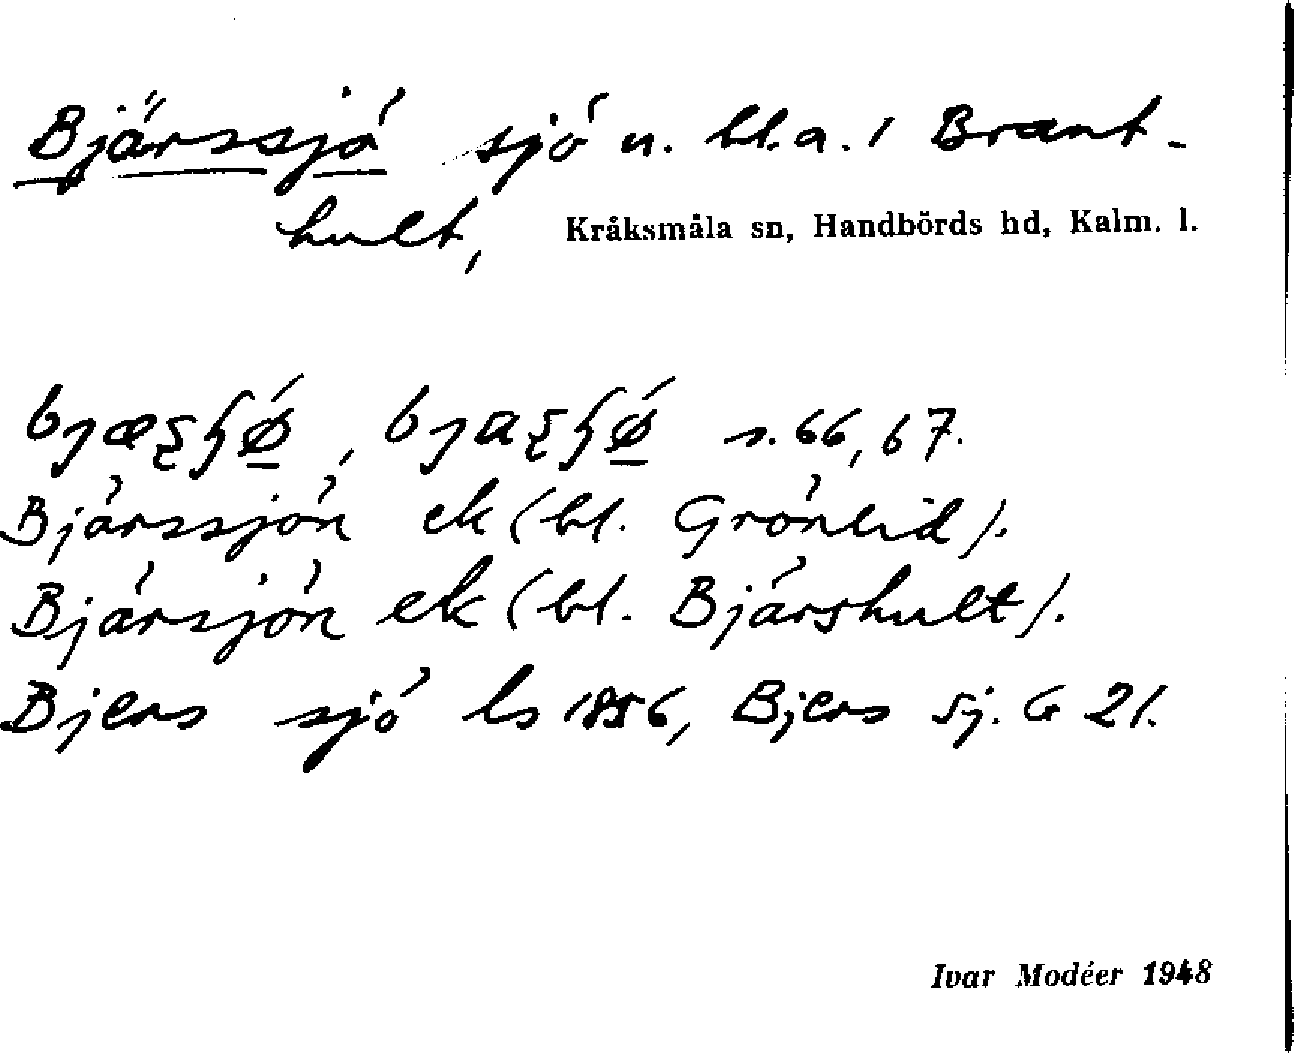 Bjärssjö sjö u. bl.a. i Brant-
hult, Kråksmåla sn, Handbörds hd, Kalm. l.
s. 66, 67.
Bjärssjön ek (bl. Grönlid).
Bjärsjön ek (bl. Bjärshult).
Bjers sjö ls 1856, Bjers Sj. G 21.
Ivar Modéer 1948